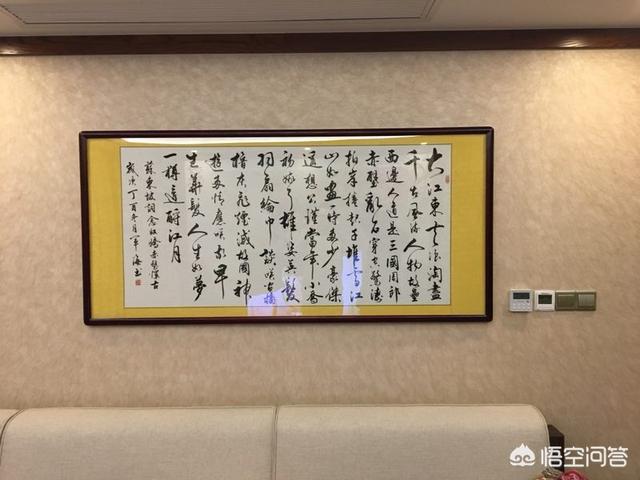 大江東去浪淘盡
千古風流人物故壘
西邊人道是三國周郎
赤壁亂石穿空驚濤
拍岸捲起千堆雪江
山如畫一時多少豪傑
遙想公謹當年小喬
初嫁了雄姿英髮
羽扇綸巾談笑间檣
櫓灰飛煙滅故國神
遊多情應笑我早
生華髮人生如夢
一樽還酹江月
蘇東坡詞念奴嬌赤壁懷古
歲次丁酉冬月軍海書
悟空问答